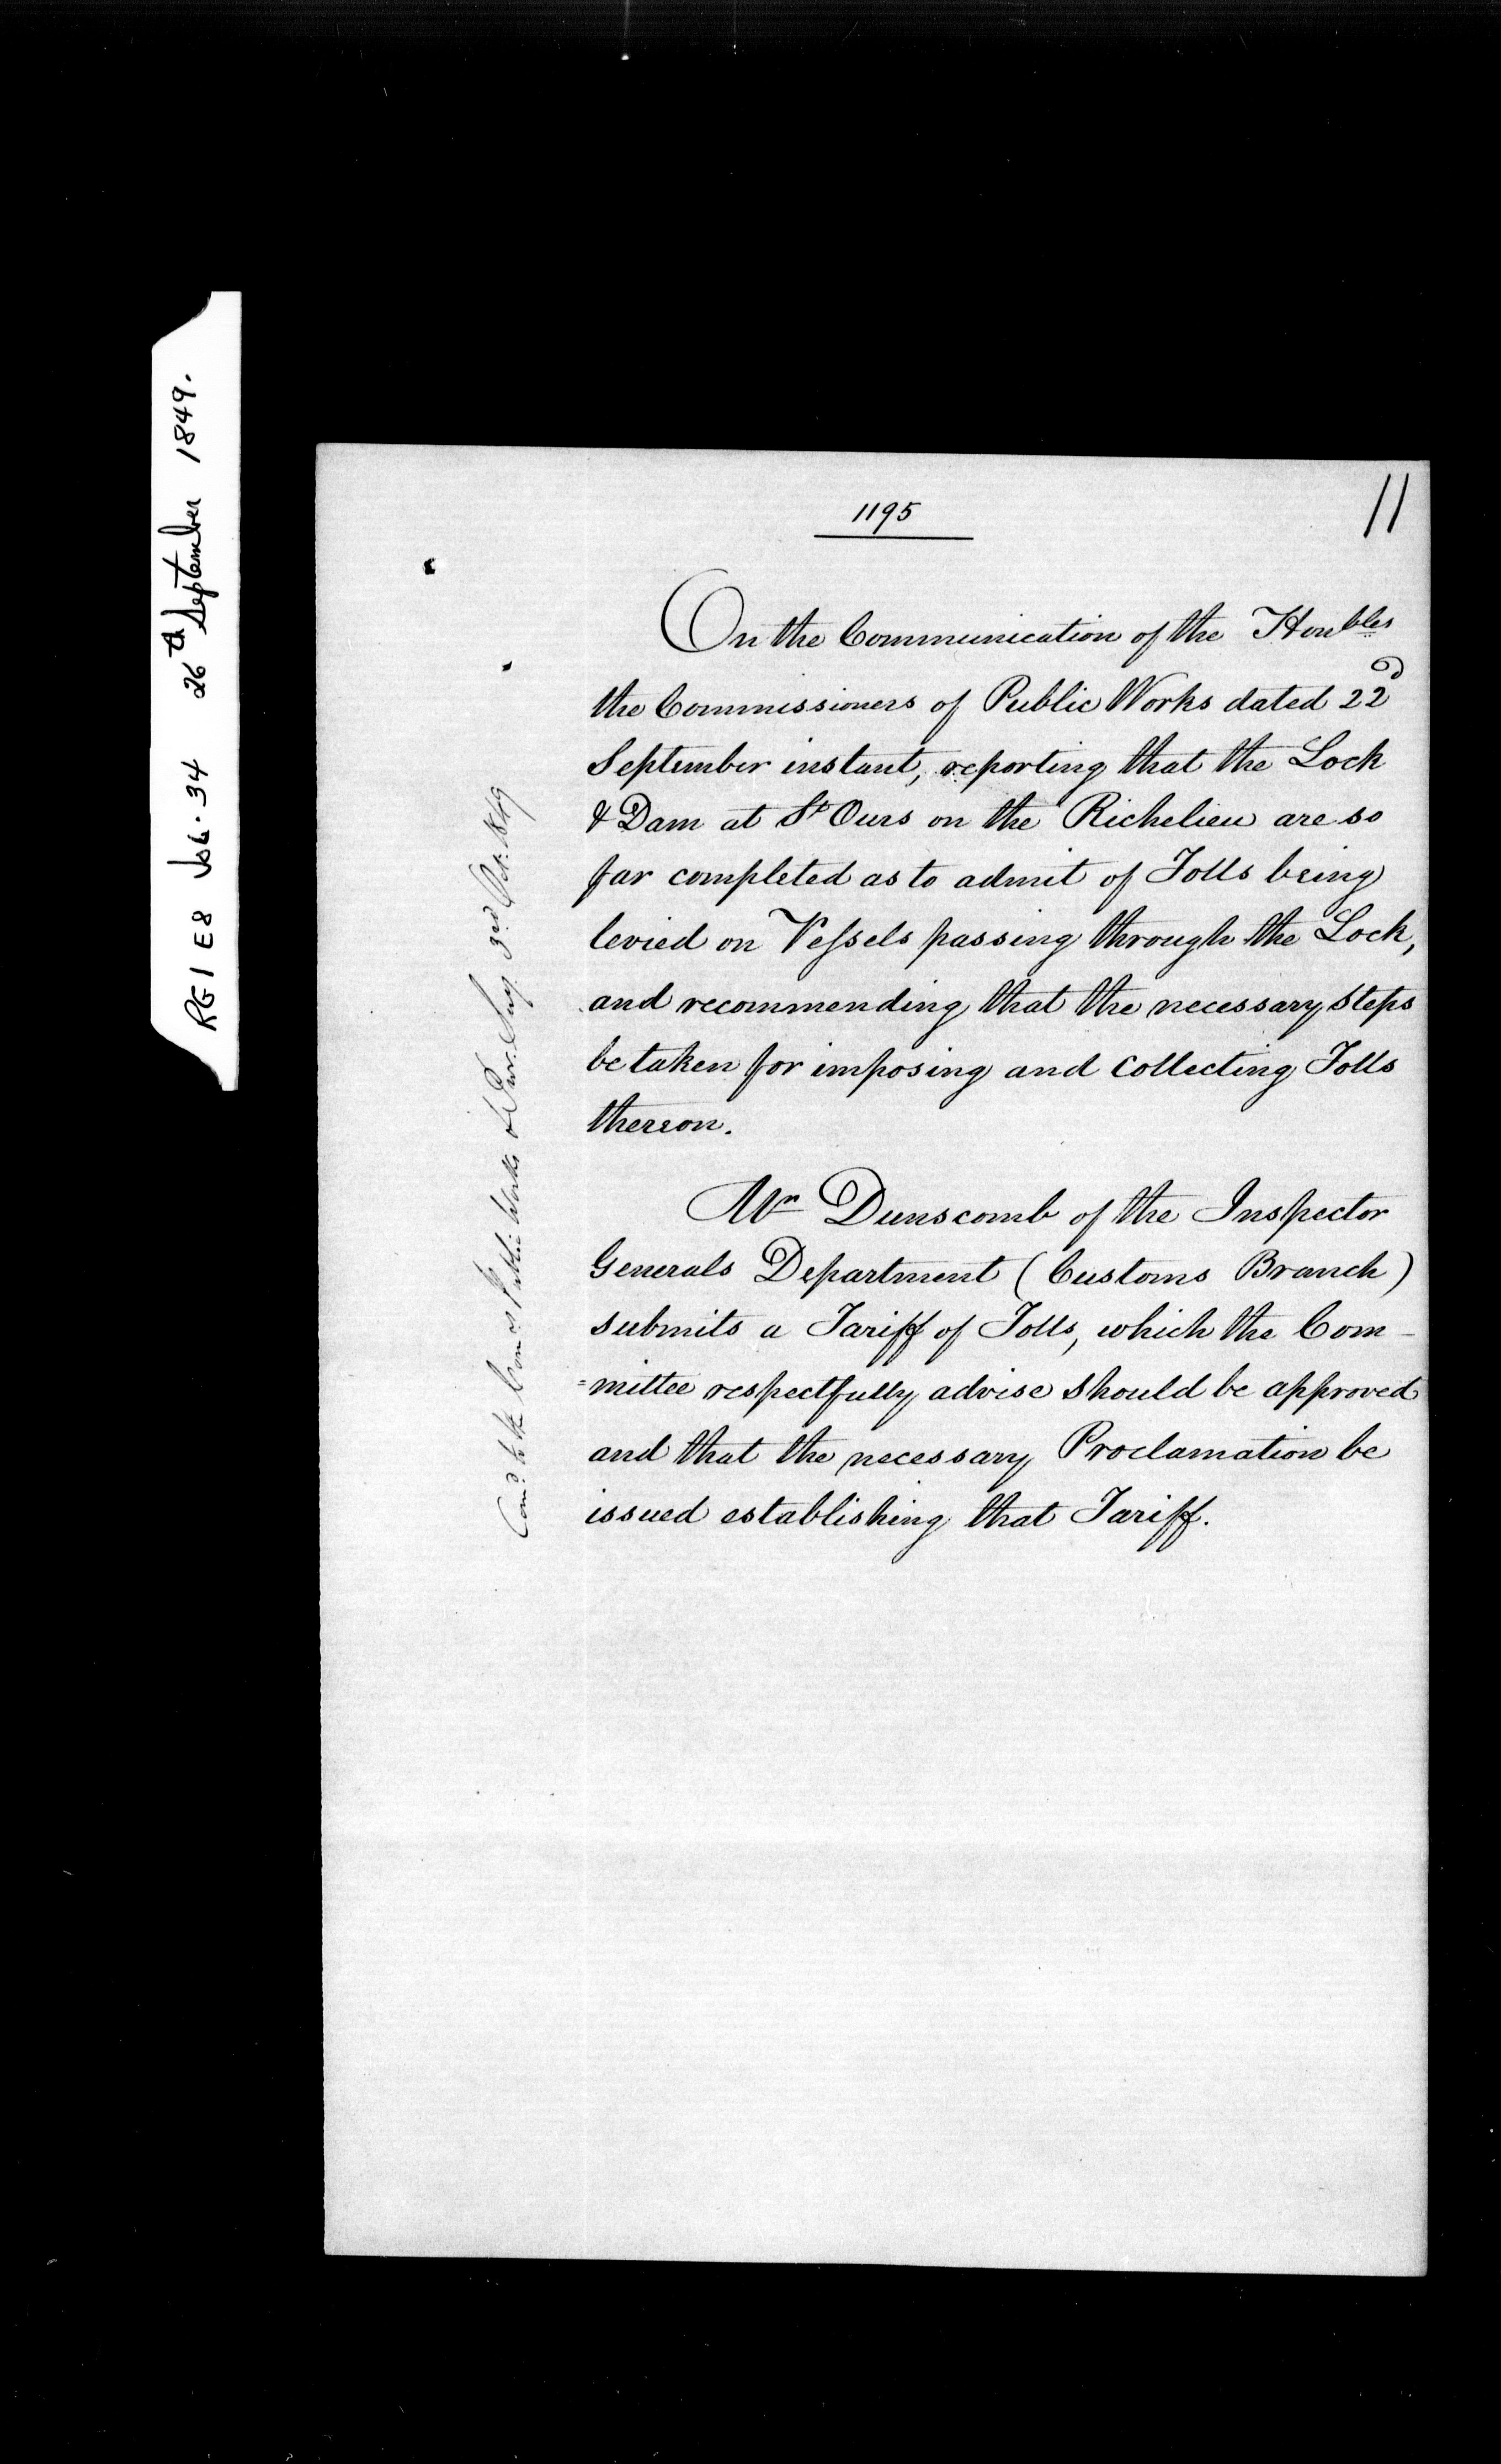 RG 1 E8 Vol. 34 26th September 1849.
1195
11
On the Communication of the Honbles
the Commissioners of Public Works dated 22d
September instant, reporting that the Lock
& Dam at St Ours on the Richelieu are so
far completed as to admit of Tolls being
levied on Vessels passing through the Lock,
and recommending that the necessary steps
be taken for imposing and collecting Tolls
thereon.
Mr Dunscomb of the Inspector
Generals Department (Customs Branch)
submits a Tariff of Tolls, which the Com-
=mittee respectfully advise should be approved
and that the necessary Proclamation be
issued establishing that Tariff.
Comd to the Com of Public Works 3rd Oct. 1849